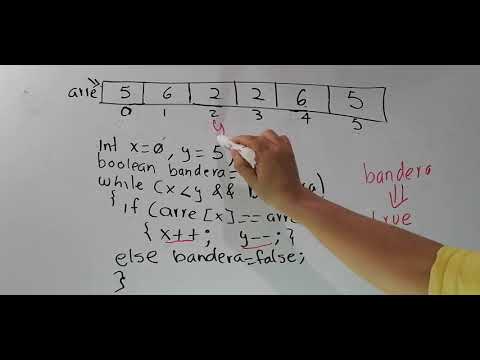 arre 5 6 2 2 6 5
0 1 2 3 4 5
y
Int x=0, y=5
boolean bandera=
while (x<y &&
bandera
{ if (arre[x]==
true
{ x++; y--; }
else bandera=false;
}